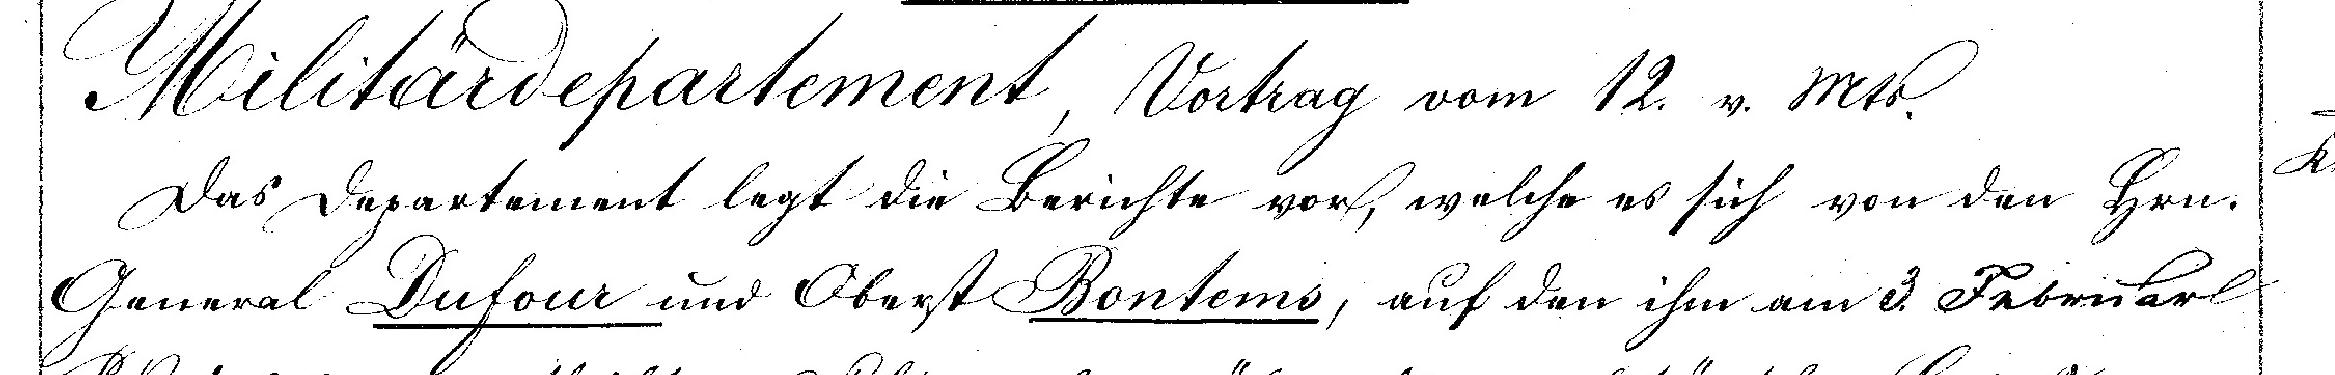 Militärdepartement, Vortrag vom 12. v. Mts.
Das Departement legt die Berichte vor, welche es sich von den Hrn.
General Dufour und Oberst Bontems, auf den ihm am 3. Februar l